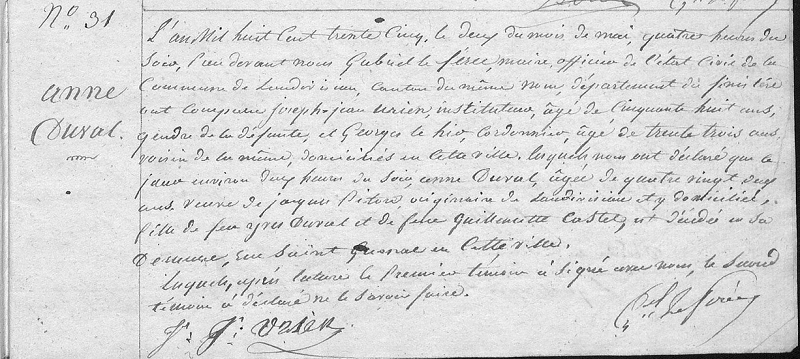 N.º 31
anne
Duval.
L'an Mil huit Cent trente Cinq, le deux du mois de mai, quatre heures du
Soir, Pardevant nous Gabriel le féree, maire, officier de l'état Civil de la
Commune de Landivisiau, Canton du même nom, département du finistère
ont Comparu joseph-jean urien, instituteur, âgé de Cinquante huit ans,
gendre de la défunte, et Georges le hir, Cordonnier, âgé de trente trois ans,
voisin de la même, domiciliés en Cette ville, lesquels nous ont déclaré que ce
jour environ deux heures du Soir, anne Duval, âgée de quatre vingt deux
ans. Veuve de jacques Piton, originaire de Landivisiau et y domiciliée,
fille de feu yves Duval et de feue Guillemette Castel, est décédée en sa
Demeure, rue Saint Guenal en Cette ville.
Lesquels, après lecture le Premier témoin à Signé avec nous, le Second
témoin à déclaré ne le Savoir faire.
Jh. Jn. Urien